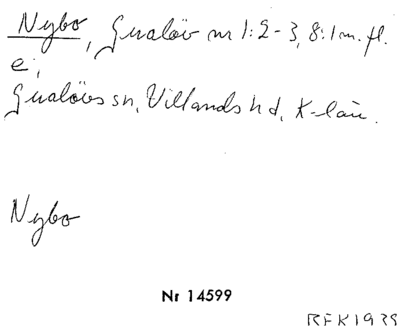 Nybo, Gualöv nr 1:2-3, 8:1 m. fl.
e.
Gualövs sn, Villands hd, K-län.
Nybo
Nr 14599
REK 1939